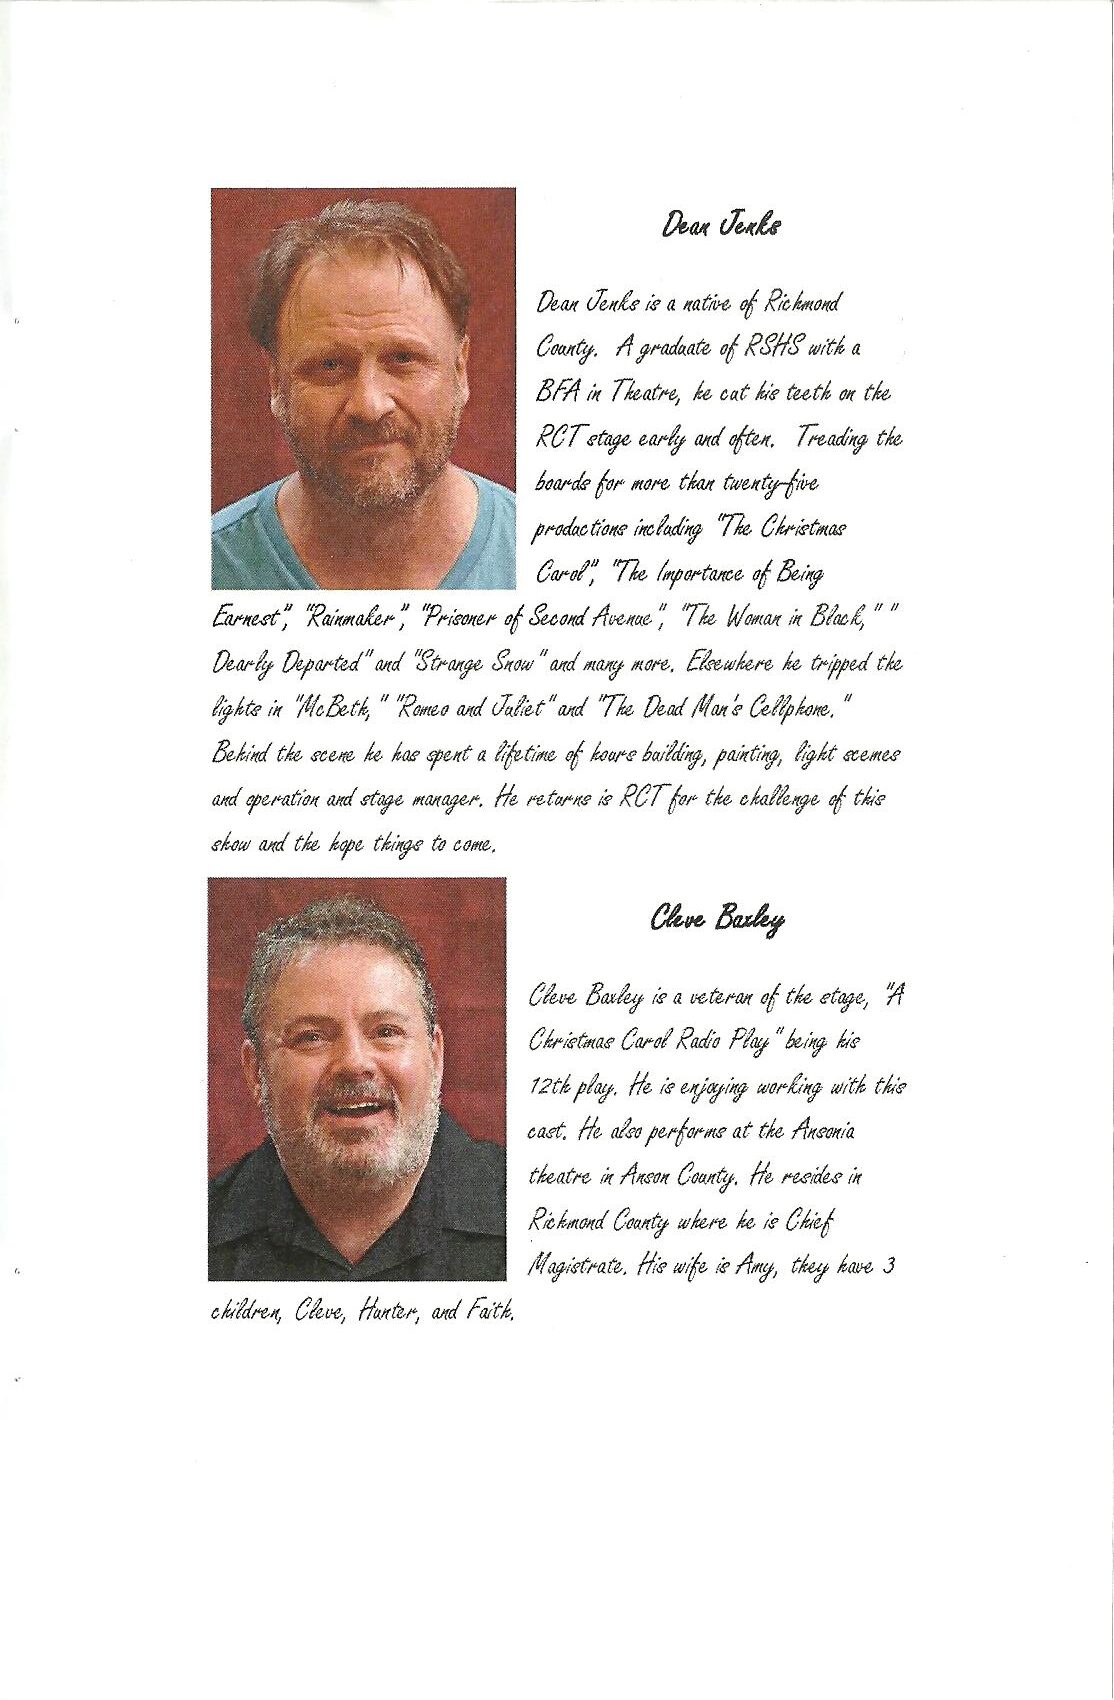 Dean Jenks
Dean Jenks is a native of Richmond
County. A graduate of RSHS with a
BFA in Theatre, he cut his teeth on the
RCT stage early and often. Treading the
boards for more than twenty-five
productions including "The Christmas
Carol", "The Importance of Being
Earnest", "Rainmaker", "Prisoner of Second Avenue", "The Woman in Black," "
Dearly Departed" and "Strange Snow" and many more. Elsewhere he tripped the
lights in "McBeth," "Romeo and Juliet" and "The Dead Man's Cellphone."
Behind the scene he has spent a lifetime of hours building, painting, light scemes
and operation and stage manager. He returns is RCT for the challenge of this
show and the hope things to come.
Cleve Baxley
Cleve Baxley is a veteran of the stage, "A
Christmas Carol Radio Play" being his
12th play. He is enjoying working with this
cast. He also performs at the Ansonia
theatre in Anson County. He resides in
Richmond County where he is Chief
Magistrate. His wife is Amy, they have 3
children, Cleve, Hunter, and Faith.